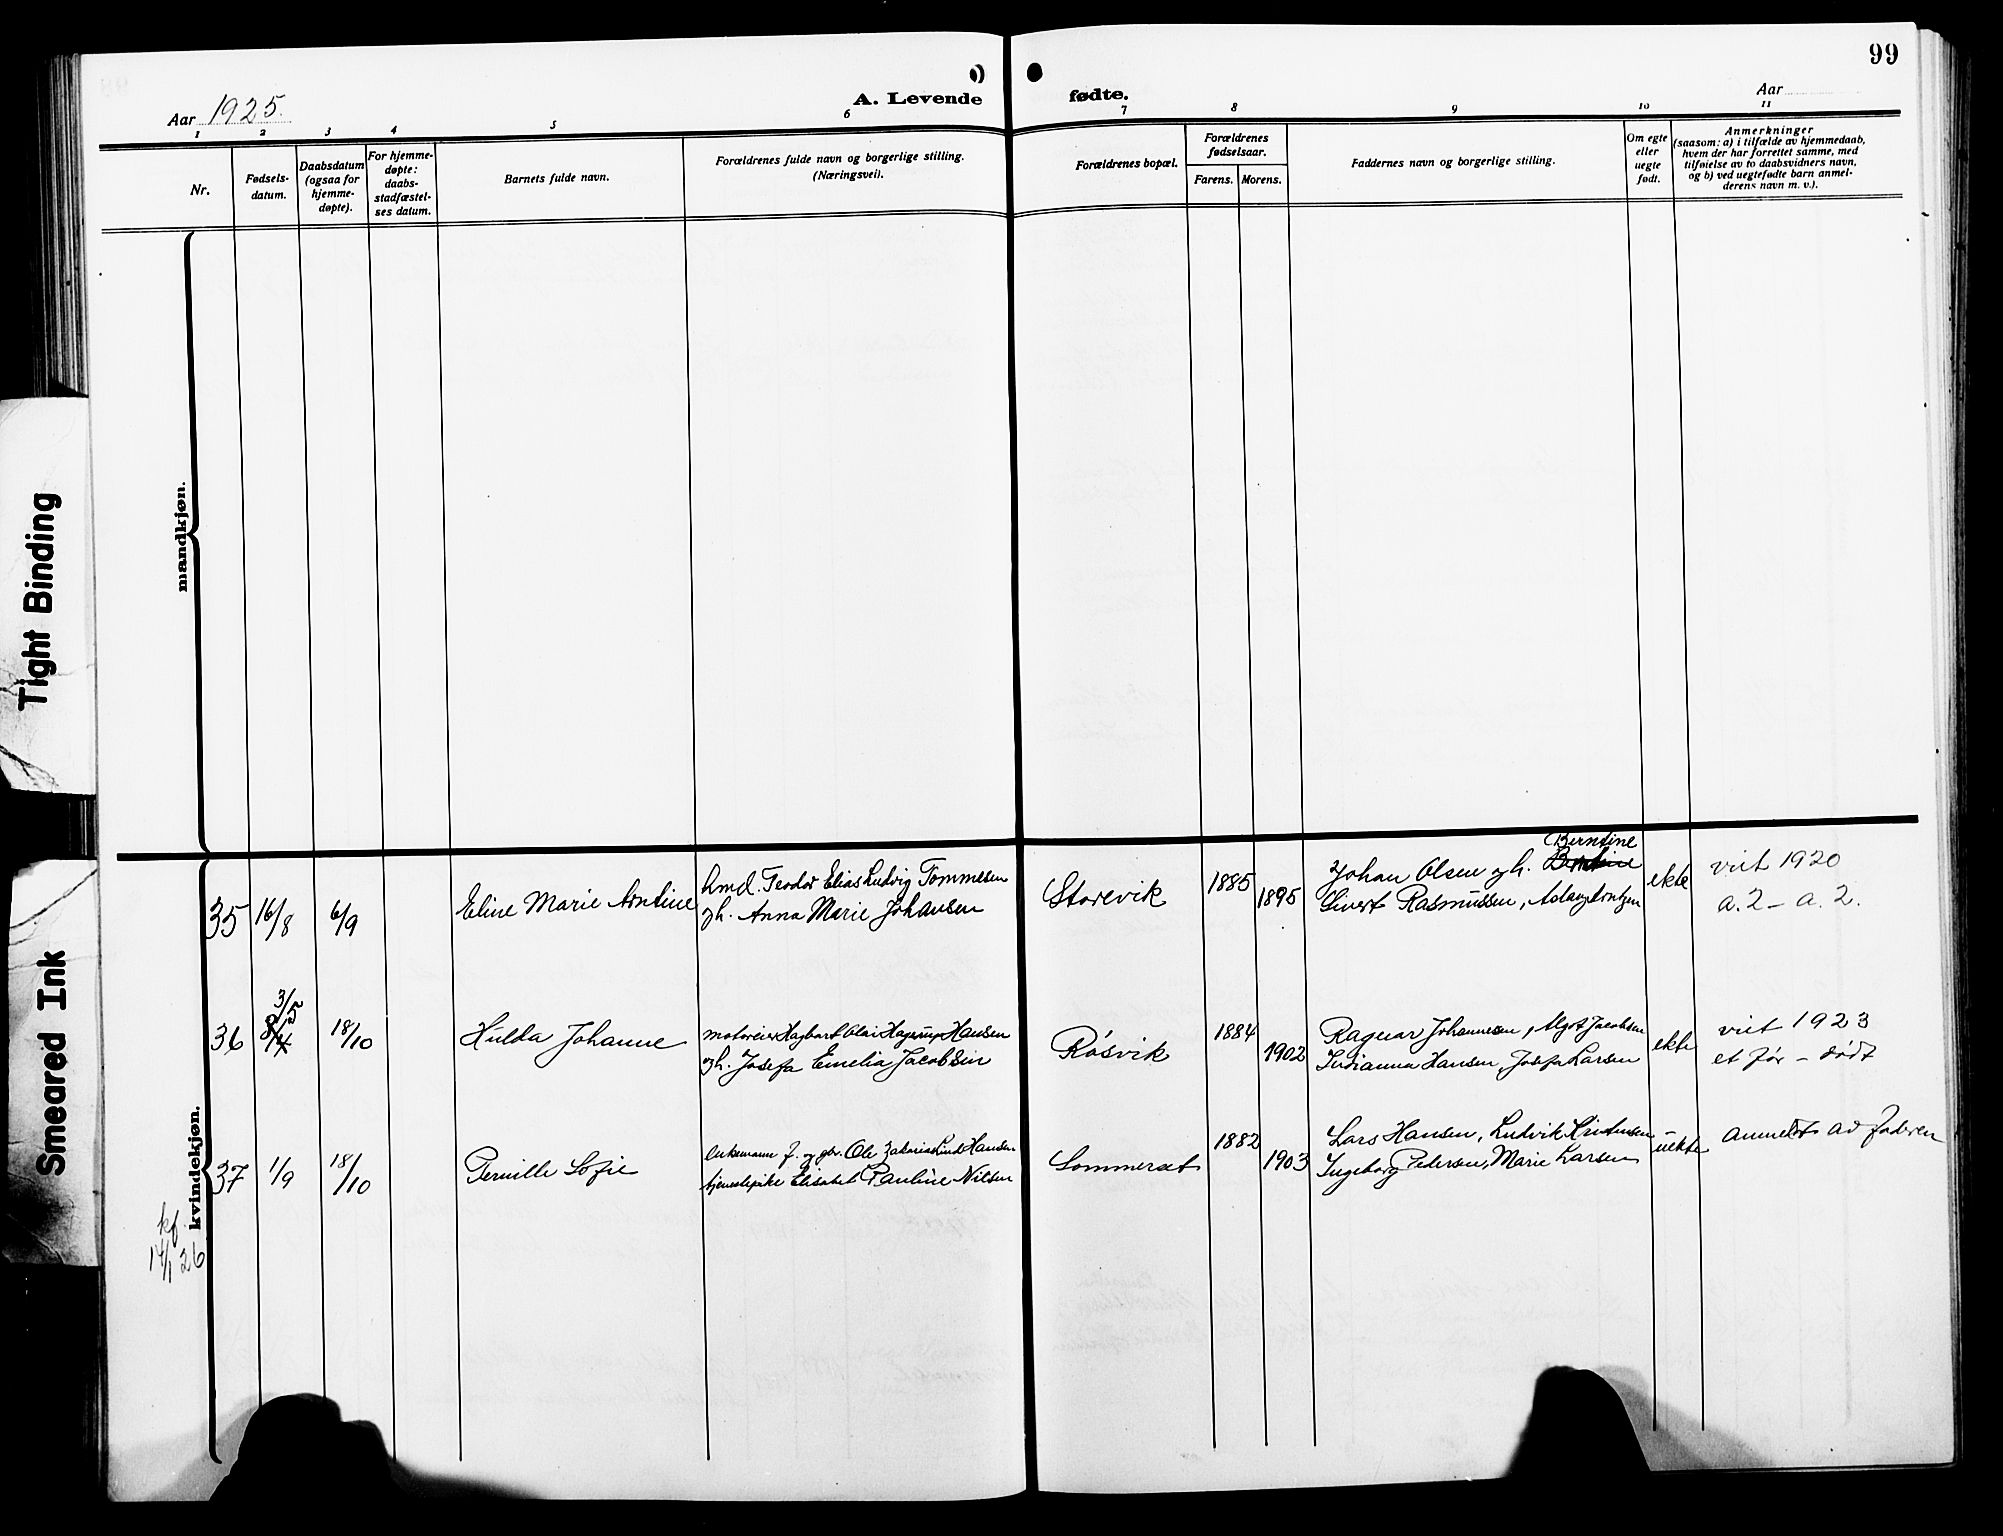 99
Aar 1925.
A. Levende
fødte.
Aar
1 2 3 4 5 6 7 8 9 10 11
Nr.
Fødsels-
datum.
Daabsdatum
(ogsaa for
hjemme-
døpte).
For hjemme-
døpte:
daabs-
stadfæstel-
ses datum.
Barnets fulde navn.
Forældrenes fulde navn og borgerlige stilling.
(Næringsvei).
Forældrenes bopæl.
Forældrenes
fødselsaar.
Farens. Morens.
Faddernes navn og borgerlige stilling.
Om egte
eller
uegte
født.
Anmerkninger
(saasom: a) i tilfælde av hjemmedaab,
hvem der har forrettet samme, med
tilføielse av to daabsvidners navn,
og b) ved uegtefødte barn anmel-
derens navn m. v.).
Tight Binding
Smeared Ink
mandkjøn.
kvindekjøn.
35 16/8 6/9 Eline Marie Arntine
hmd. Teodor Elias Ludvig Tommesen
gh. Anna Marie Johansen
Storevik 1885 1895
Berntine
Johan Olsen gh.
Sivert Rasmussen, Aslaug Arntzen
ekte
viet 1920
a. 2 – a. 2.
36 3/5 8/4 18/10 Hulda Johanne
motoreier Hagbart Olai Hagerup Hansen
gh. Josefa Emelia Jacobsen
Røsvik 1884 1902
Ragnar Johannesen, Algot Jacobsen
Indianna Hansen, Josefa Larsen
ekte
viet 1923
et før – dødt
37 1/9 18/10 Pernille Sofie
enkemann f. og gbr. Ole Zakarias Lind Hansen
tjenestepike Elisabet Pauline Nilsen
Sommerset 1882 1903
Lars Hansen, Ludvik Kristensen
Ingeborg Pedersen, Marie Larsen
uekte
anmeldt av faderen
kf.
14/1 26